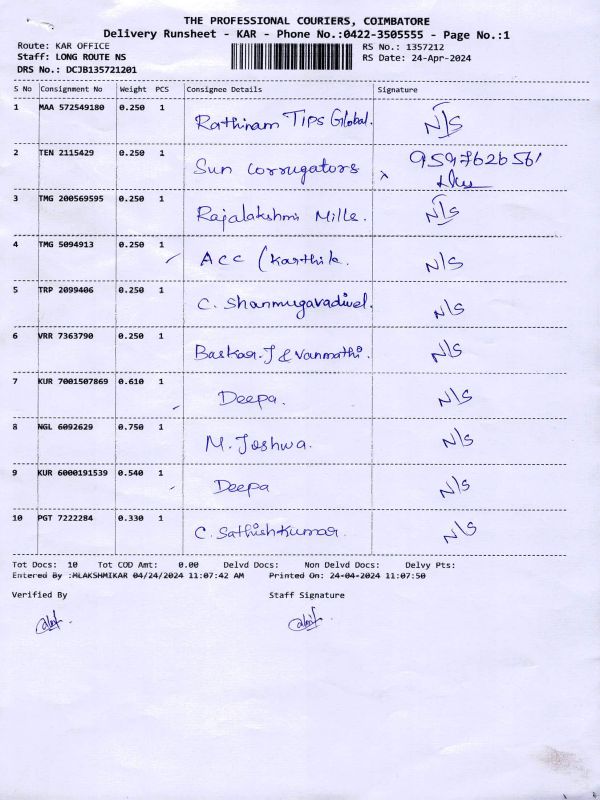 THE PROFESSIONAL COURIERS, COIMBATORE
Delivery Runsheet - KAR - Phone No.:0422-3505555 - Page No.:1
Route: KAR OFFICE RS No.: 1357212
Staff: LONG ROUTE NS RS Date: 24-Apr-2024
DRS No.: DCJB135721201
S No Consignment No Weight PCS Consignee Details Signature
1 MAA 572549180 0.250 1 Rathinam Tips Global. N/S
2 TEN 2115429 0.250 1 Sun corrugators x 9597626561
3 TMG 200569595 0.250 1 Rajalakshmi Mille. N/S
4 TMG 5094913 0.250 1 Acc (Karthik. N/S
5 TRP 2099406 0.250 1 C. Shanmugavadivel. N/S
6 VRR 7363790 0.250 1 Baskar. J & Vanmathi. N/S
7 KUR 7001507869 0.610 1 Deepa. N/S
8 NGL 6092629 0.750 1 M. Joshwa. N/S
9 KUR 6000191539 0.540 1 Deepa N/S
10 PGT 7222284 0.330 1 C. Sathishkumar. N/S
Tot Docs: 10 Tot COD Amt: 0.00 Delvd Docs: Non Delvd Docs: Delvy Pts:
Entered By :MLAKSHMIKAR 04/24/2024 11:07:42 AM Printed On: 24-04-2024 11:07:50
Verified By Staff Signature